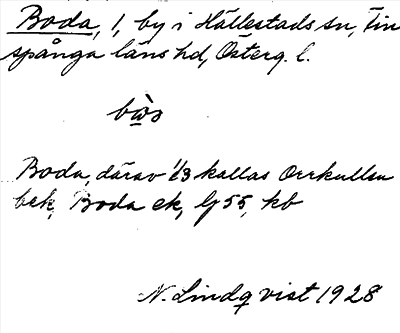 Boda, 1, by i Hällestads sn, Fin
spånga läns hd, Österg. l.
Boda, därav 1/3 kallas Orrkullen
bek, Boda ek, lj 55, kb
N. Lindqvist 1928